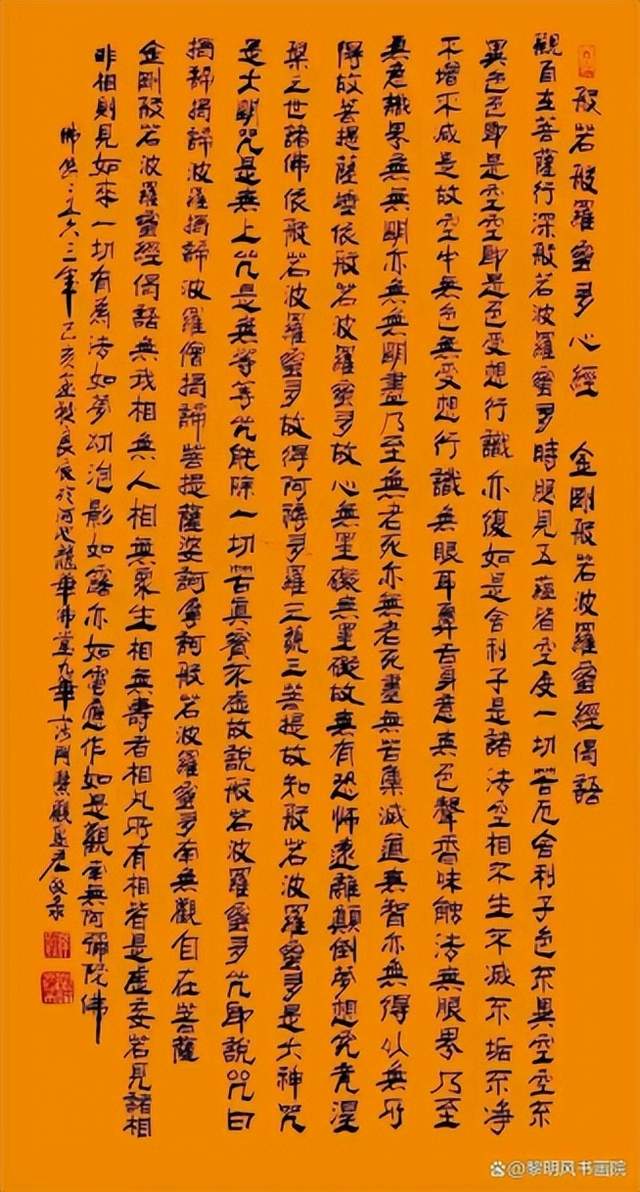 般若般羅蜜多心經 金剛般若波羅蜜經偈語
觀自在菩薩行深般若波羅蜜多時照見五蘊皆空度一切苦厄舍利子色不異空空不
異色色即是空空即是色受想行識亦復如是舍利子是諸法空相不生不減不垢不净
不增不减是故空中無色無受想行識無眼耳鼻舌身意無色聲香味觸法無眼界乃至
無意識界無無明亦無無明盡乃至無老死亦無老死盡無苦集滅道無智亦無得以無所
得故菩提薩埵依般若波羅蜜多故心無罣礙無罣礙故無有恐怖遠離顛倒夢想究竟涅
槃三世諸佛依般若波羅蜜多故得阿耨多羅三藐三菩提故知般若波羅蜜多是大神咒
是大明咒是無上咒是無等等咒能除一切苦真實不虛故說般若波羅蜜多咒即說咒曰
揭諦揭諦波羅揭諦波羅僧揭諦菩提薩婆訶摩訶般若波羅蜜多南無觀自在菩薩
金剛般若波羅蜜經偈語無我相無人相無眾生相無壽者相凡所有相皆是虛妄若見諸相
非相則見如來一切有為法如夢幻泡影如露亦如電應作如是觀南無阿彌陀佛
佛曆二五六三年己亥孟秋良辰於河北龍華佛堂九華
@黎明风书画院